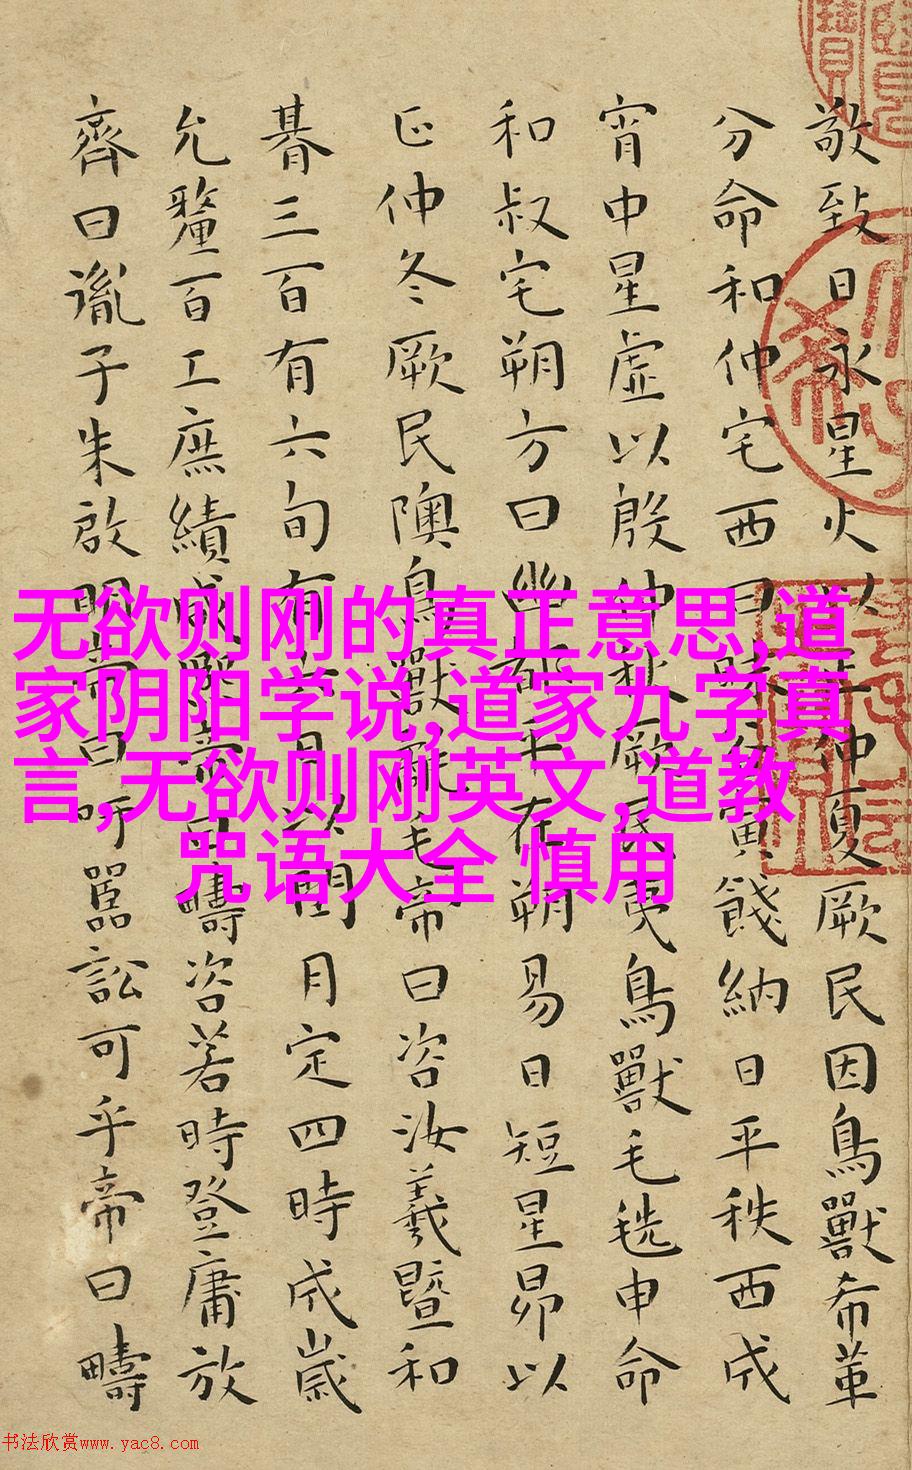 敬致日永星火以正仲夏厥民因鳥獸希革
分命和仲宅西曰昧谷寅餞納日平秩西成
宵中星虛以殷仲秋厥民夷鳥獸毛毨申命
和叔宅朔方曰幽都平在朔易日短星昴以
正仲冬厥民隩鳥獸氄毛帝曰咨汝羲暨和
朞三百有六旬有六日以閏月定四時成歲
允釐百工庶績咸熙帝曰疇咨若時登庸放
齊曰胤子朱啟明帝曰吁嚚訟可乎帝曰疇
无欲则刚的真正意思,道
家阴阳学说,道家九字真
言,无欲则刚英文,道教
咒语大全 慎用
书法欣赏www.yac8.com